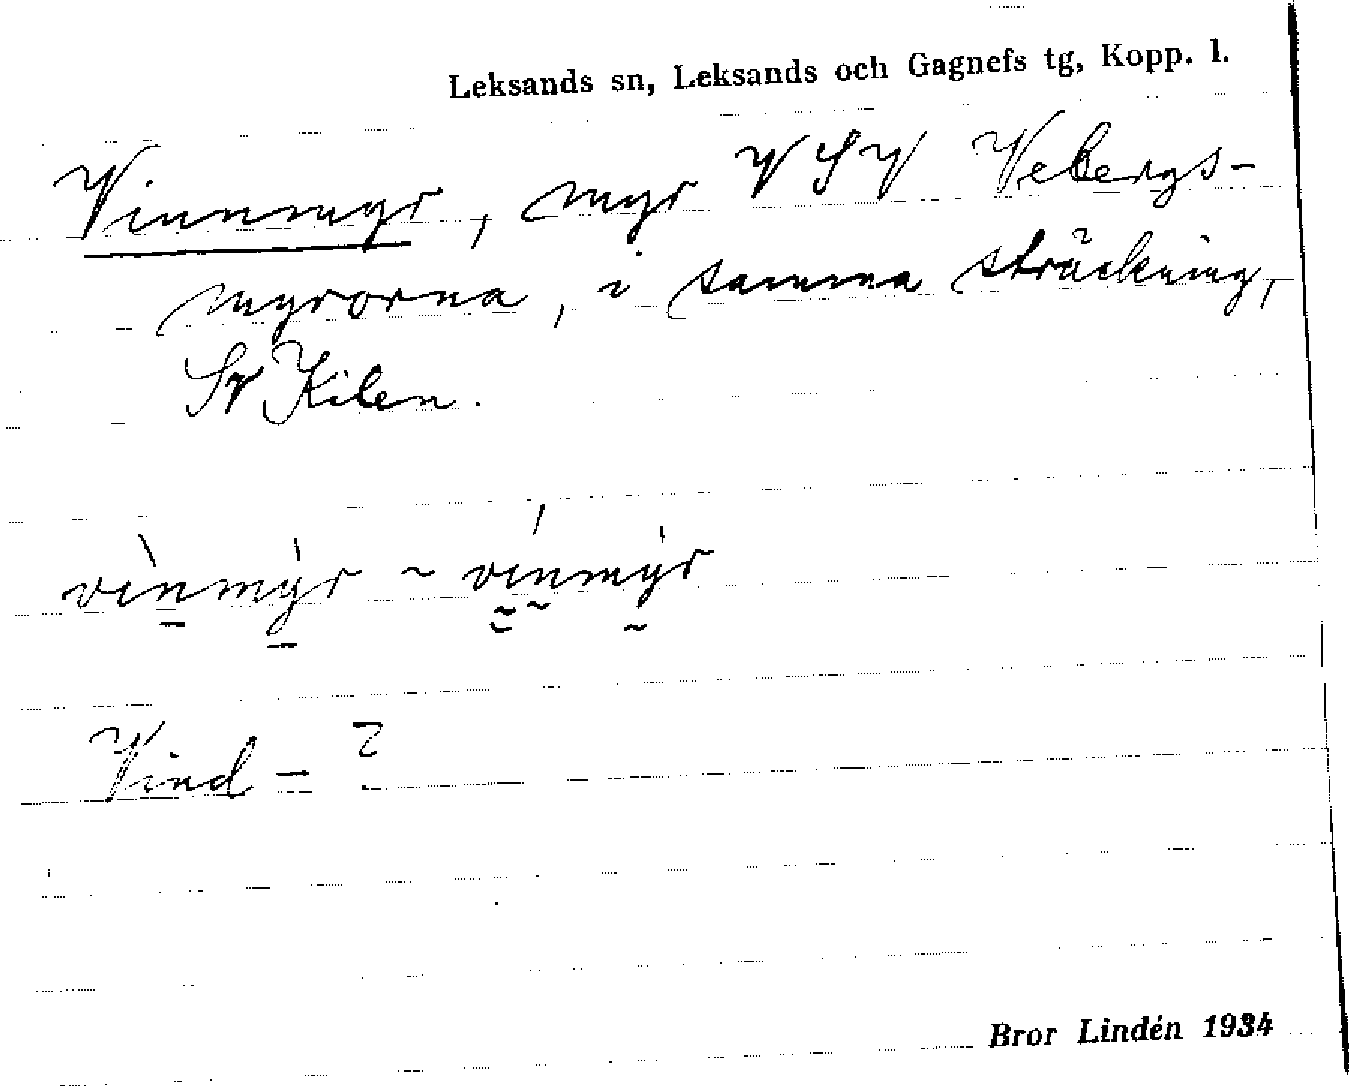 Leksands sn, Leksands och Gagnefs tg, Kopp. l.
Vinnmyr, myr VSV Vebergs-
myrorna, i samma sträckning,
SV Kilen.
vìnmýr ~ vínmýr
Vind - ?
Bror Lindén 1934